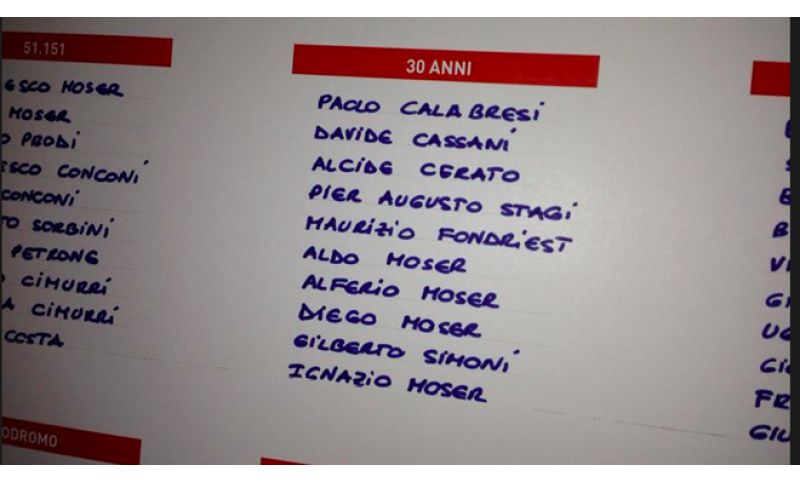 51.151
ESCO MOSER
MOSER
O PRODI
ESCO CONCONI
CONCONI
TO SORBINI
PETRONE
O CIMURRI
A CIMURRI
COSTA
ODROMO
30 ANNI
PAOLO CALABRESI
DAVIDE CASSANI
ALCIDE CERATO
PIER AUGUSTO STAGI
MAURIZIO FONDRIEST
ALDO MOSER
ALFERIO MOSER
DIEGO MOSER
GILBERTO SIMONI
IGNAZIO MOSER
VI
GI
UG
GIO
FR
GIU